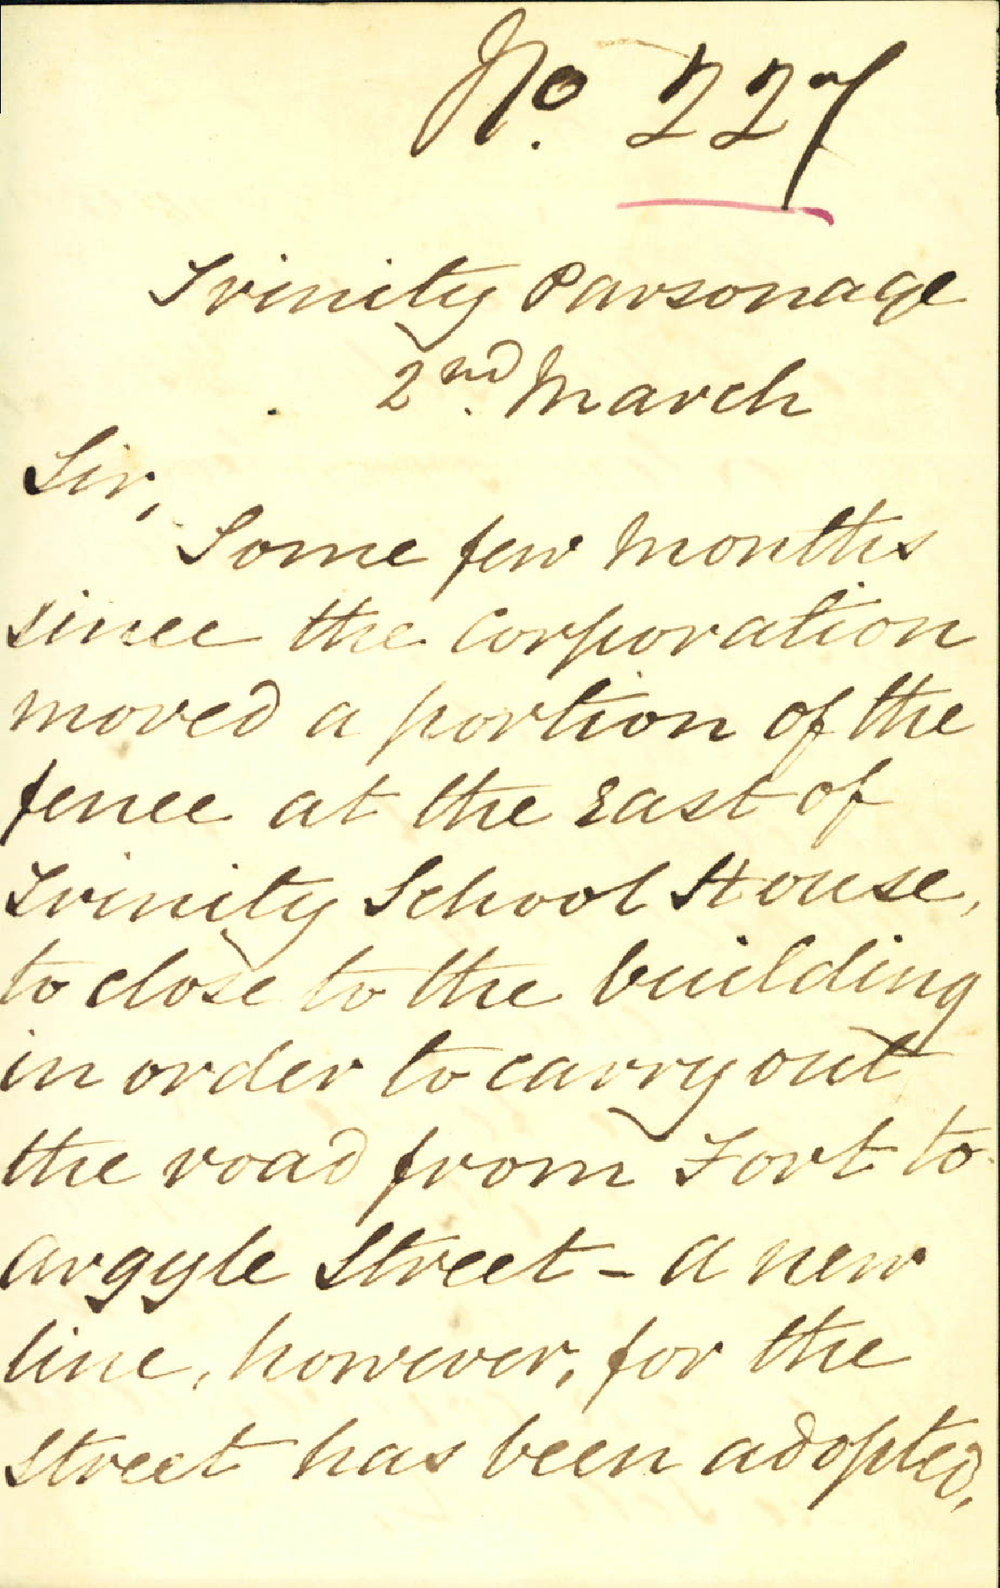 No. 227
Trinity Parsonage
2nd. March
Sir,
Some few months
since the Corporation
moved a portion of the
fence at the East of
Trinity School House,
to close to the building
in order to carry out
the road from Fort to
Argyle Street - A new
line, however, for the
Street has been adopted,